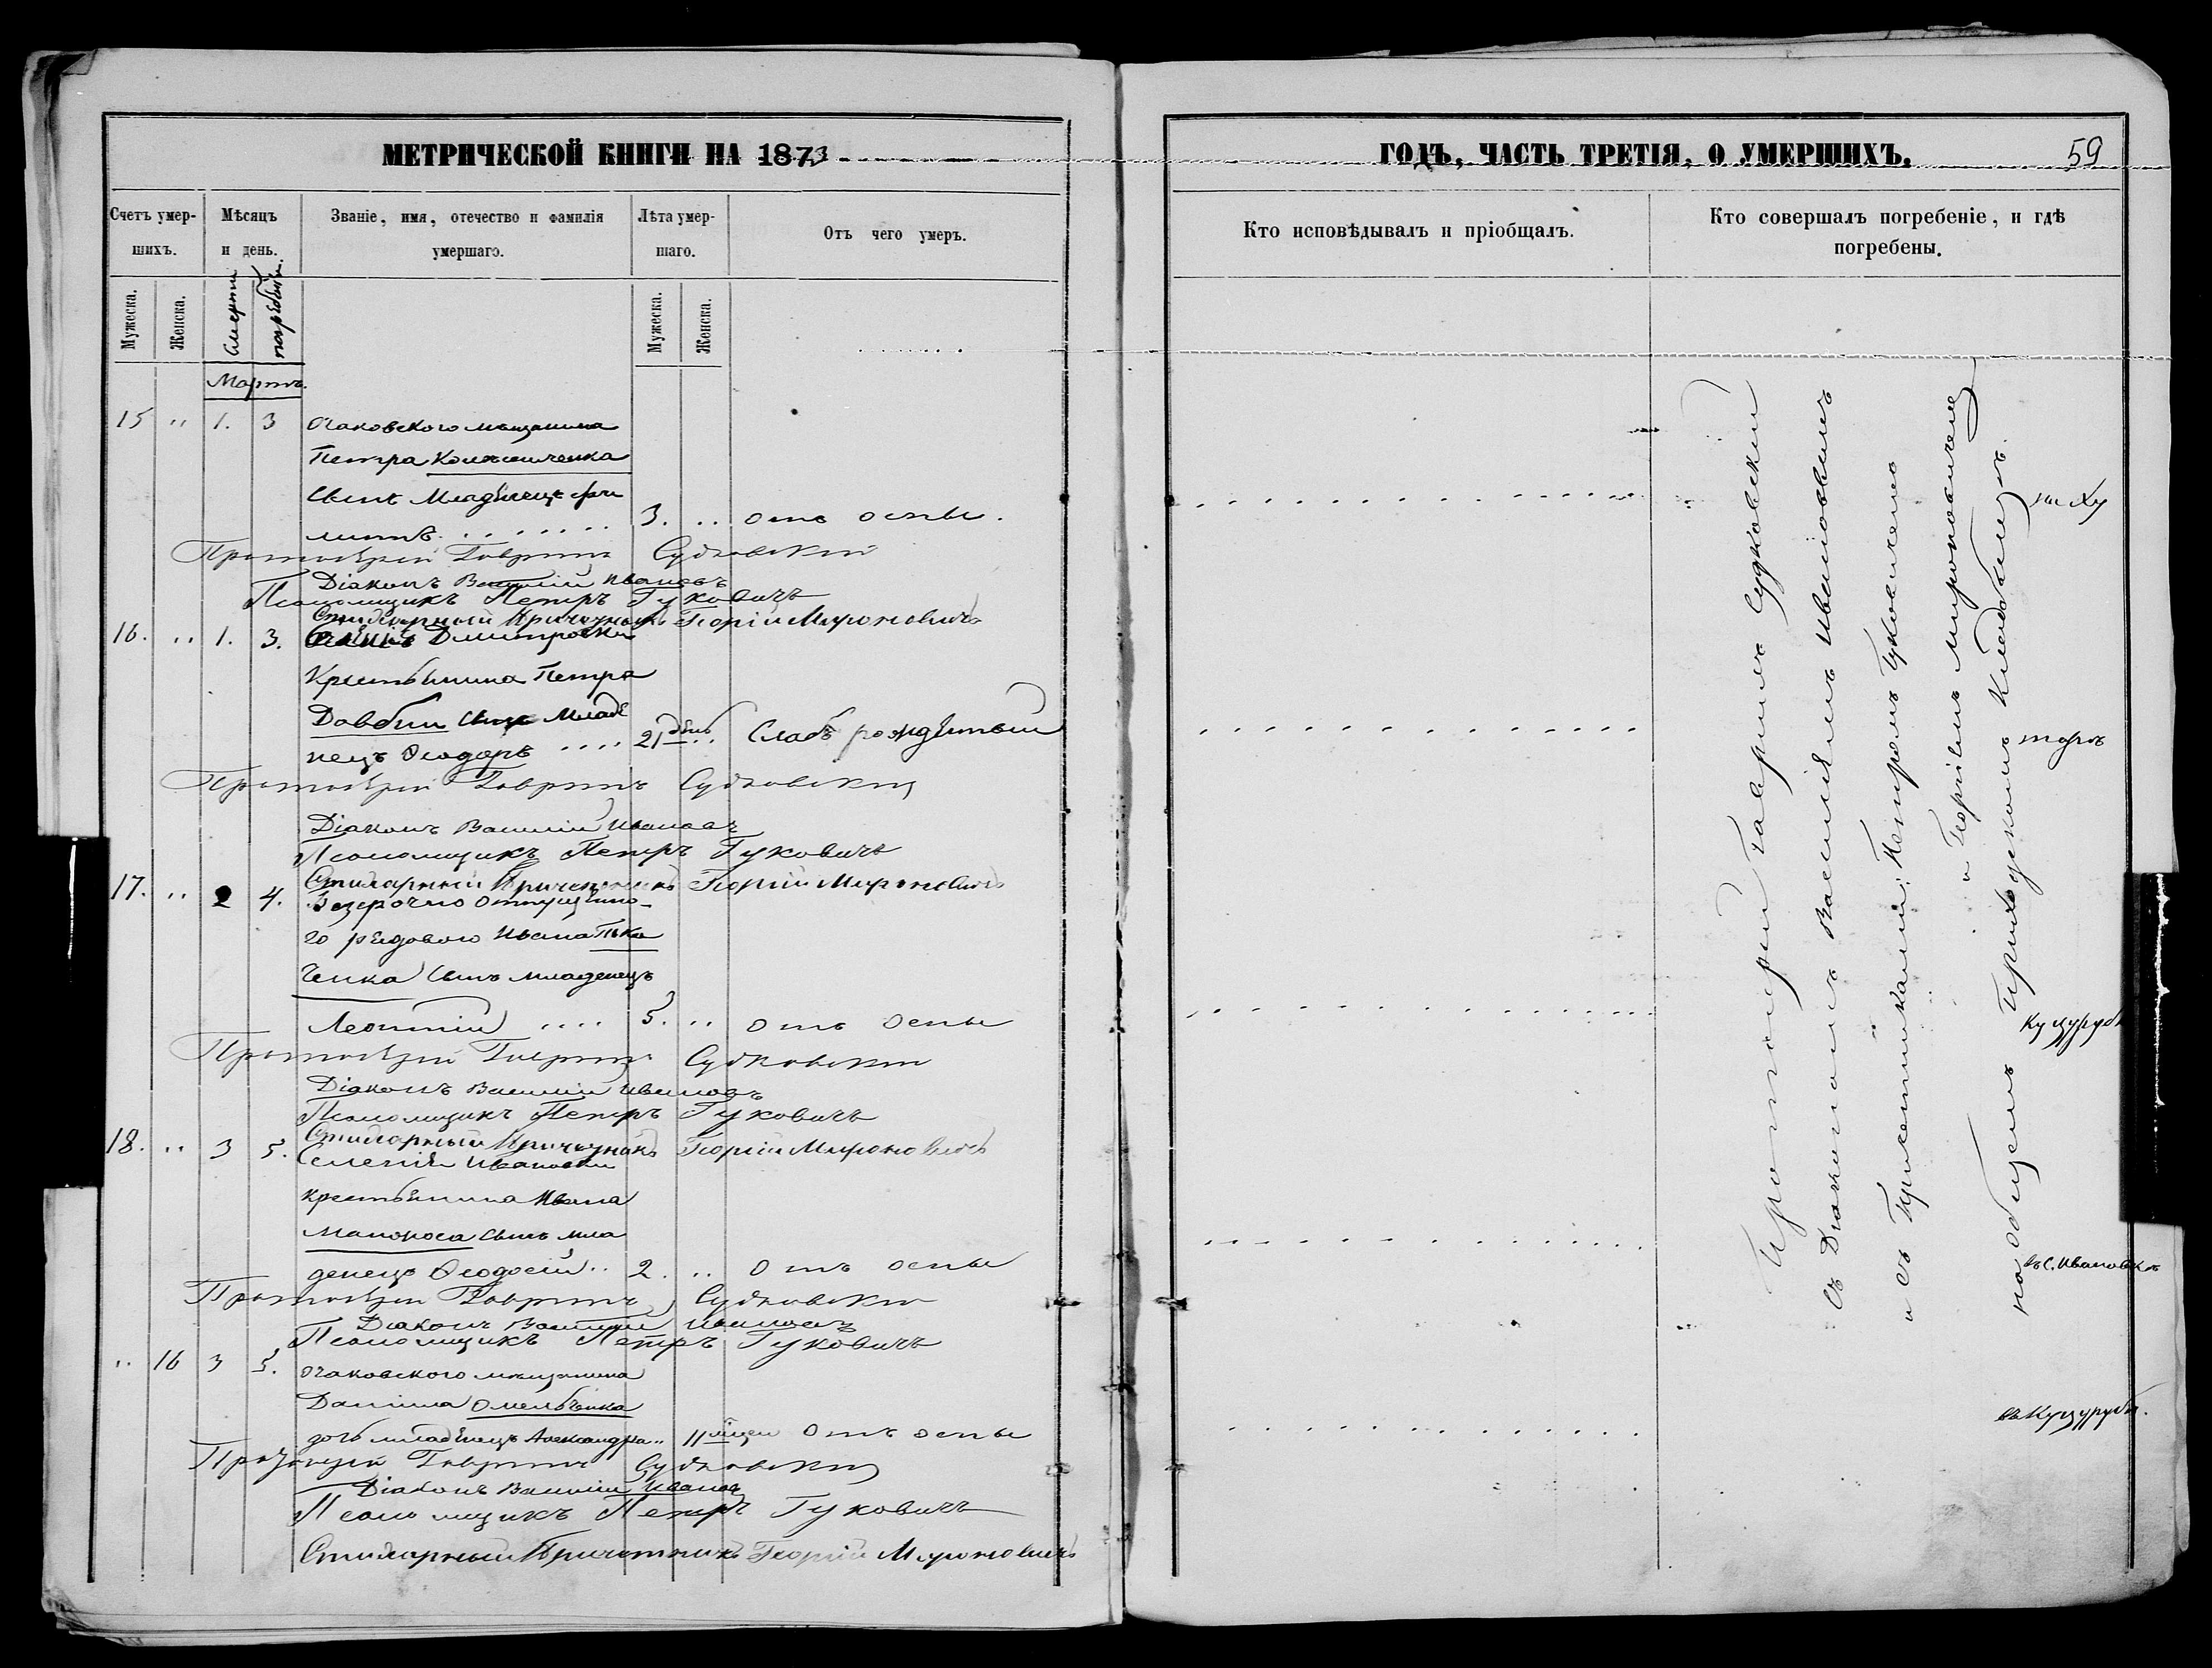 МЕТРИЧЕСКОЙ КНИГИ НА 1873
Счетъ умер-
шихъ.
Мѣсяцъ
и день.
Званіе, имя, отечество и фамилія
умершаго.
Лѣта умер-
шаго.
Отъ чего умеръ.
Мужеска.
Женска.
Смерти
погребенія.
Мужеска.
Женска.
Мартъ.
15 " 1. 3 Очаковского мѣщанина
Петра
Сынъ Младенецъ Фи
липъ. . . . . . . 3. .. отъ оспы.
Протоіерей Гавріилъ Судковскій
Діаконъ Василій Ивановъ
Псаломщикъ Петръ Гуковичъ
Стихарный Причетникъ Георгій Мироновичъ
16. .. 1. 3. Дмитровки
Крестьянина Петра
Довбни Сынъ Младе
нецъ Ѳеодоръ .... 21 день .. Слабо рожденный
Протоіерей Гавріилъ Судковскій
Діаконъ Василій Ивановъ
Псаломщикъ Петръ Гуковичъ
Стихарный Причетникъ Георгій Мироновичъ
17. .. 2 4. Безсрочно отпущенно-
го рядового Ивана Тка
ченка Сынъ младенецъ
Леонтій .... 5. .. отъ оспы
Протоіерей Гавріилъ Судковскій
Діаконъ Василій Ивановъ
Псаломщикъ Петръ Гуковичъ
Стихарный Причетникъ Георгій Мироновичъ
18. .. 3 5. Селенія Ивановки
крестьянина Ивана
Манокоса Сынъ мла
денецъ Ѳеодосій .. 2. .. отъ оспы
Протоіерей Гавріилъ Судковскій
Діаконъ Василій Ивановъ
Псаломщикъ Петръ Гуковичъ
.. 16 3 5. Очаковского мѣщанина
Даніила Омельченка
дочь младенецъ Александра .. 11 мѣсец отъ оспы
Протоіерей Гавріилъ Судковскій
Діаконъ Василій Ивановъ
Псаломщикъ Петръ Гуковичъ
Стихарный Причетникъ Георгій Мироновичъ
ГОДЪ, ЧАСТЬ ТРЕТІЯ, О УМЕРШИХЪ.
59
Кто исповѣдывалъ и пріобщалъ.
Кто совершалъ погребеніе, и гдѣ
погребены.
Протоіерей Гавріилъ Судковскій
съ Діакономъ Василіемъ Ивановымъ
и съ Причетниками: Петромъ Гуковичемъ
и Георгіемъ Мироновичемъ
на общемъ Приходскомъ Кладбищѣ.
на Ху
торѣ
Куцурубѣ
въ С. Ивановкѣ
въ Куцурубѣ.